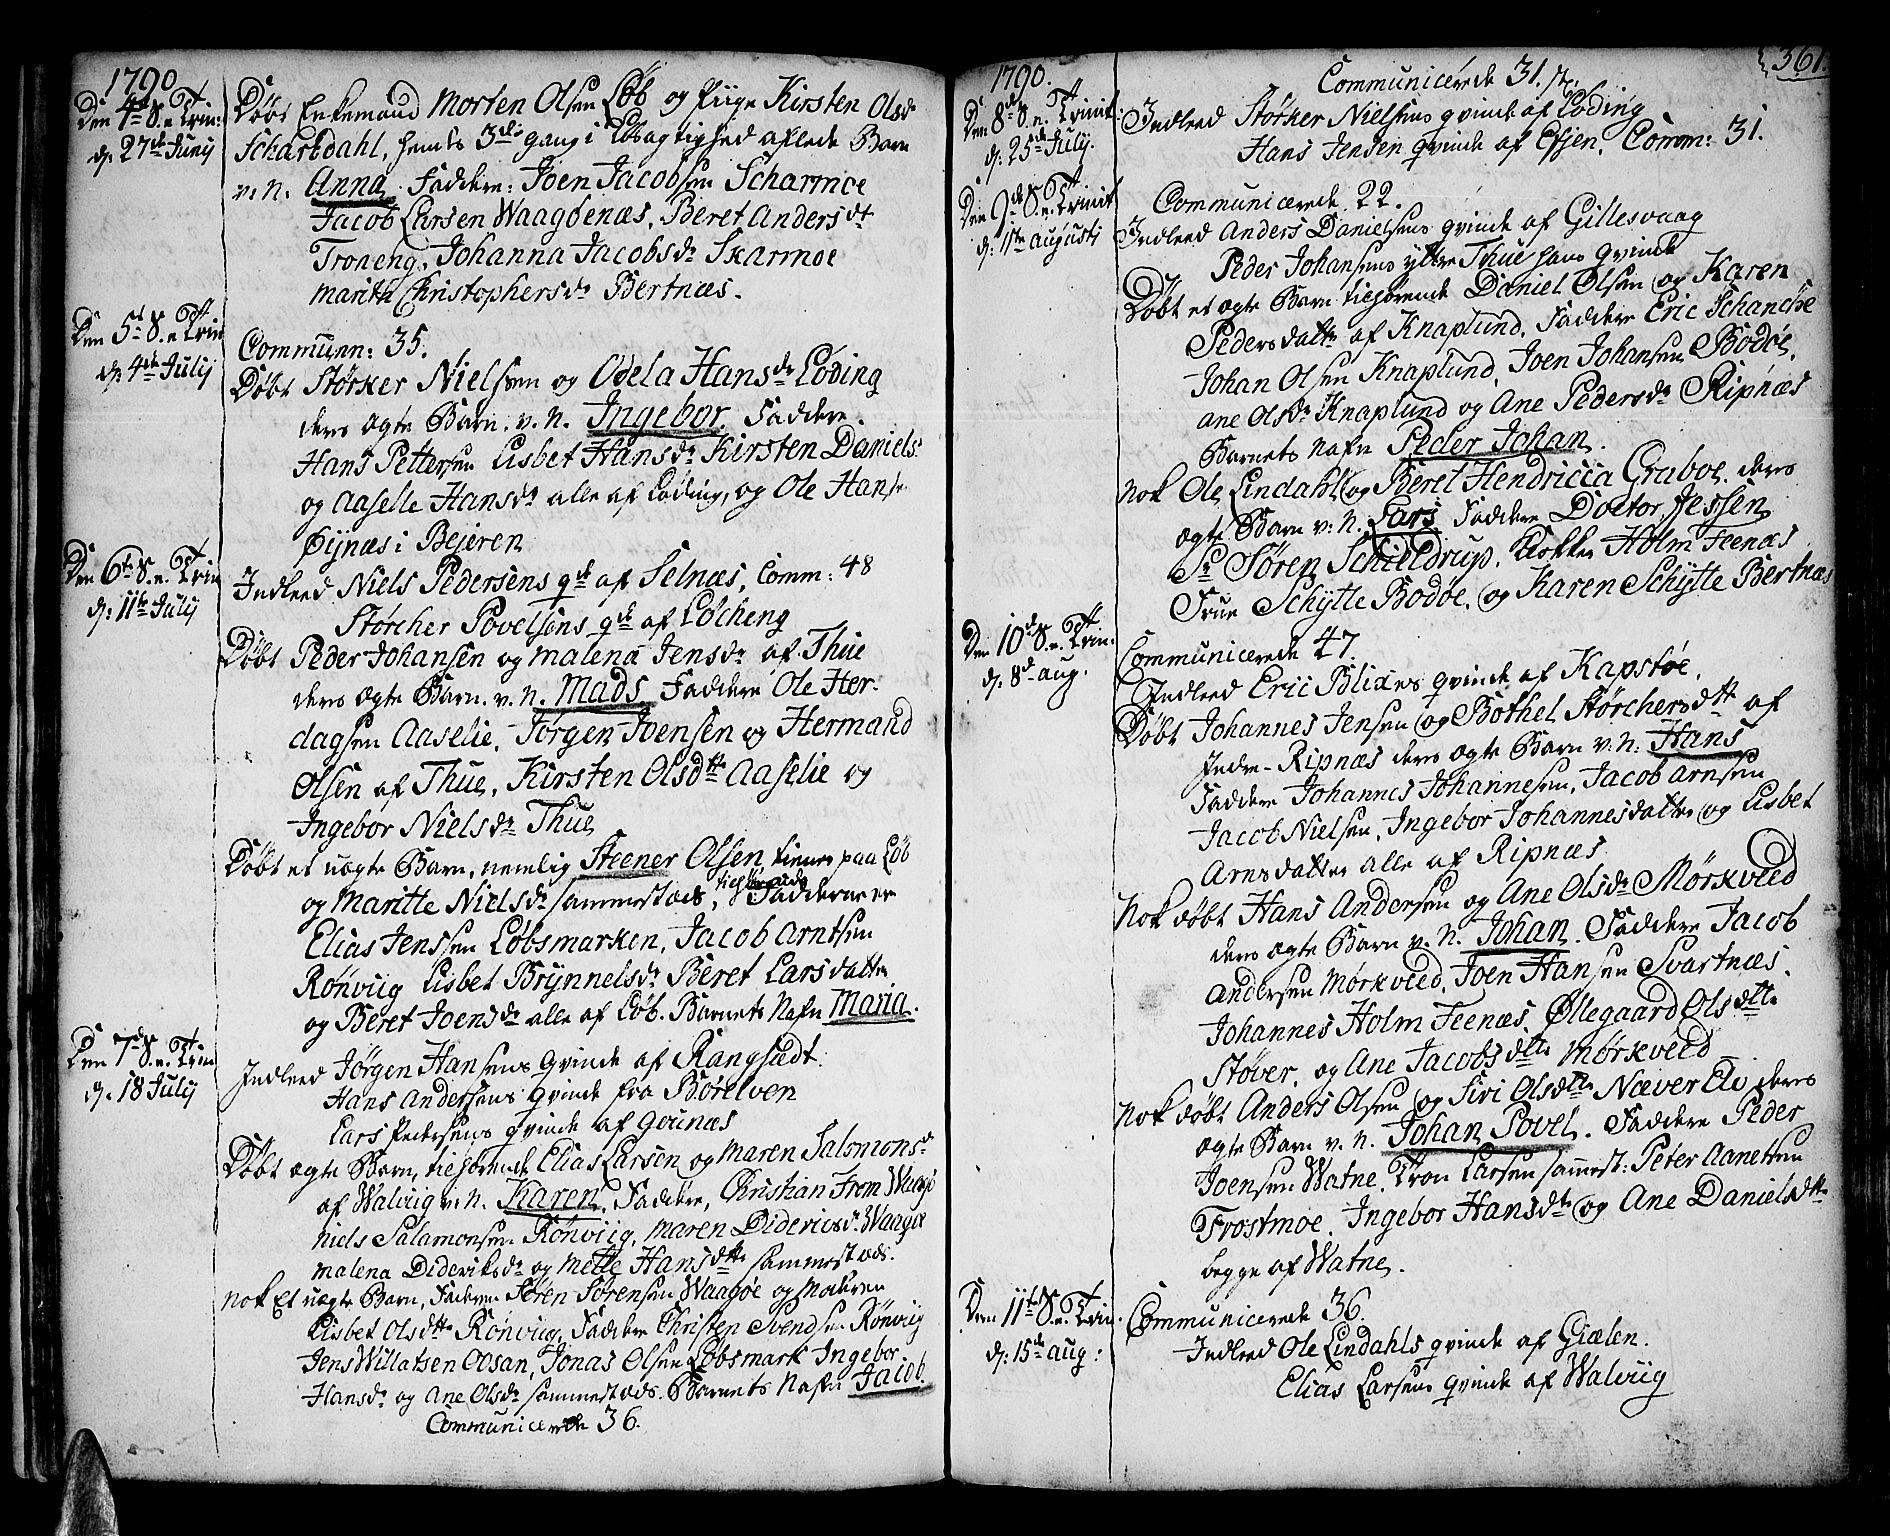 1790
Den 4de S. e. Trin:
d: 27de Juny
Døbt Enkemand Morten Olsen Løb og Pige Kirsten Olsd
Schartdahl, hendes 3die gang i Løsagtighed aflede Barn
v. N. Anna. Faddere: Joen Jacobsen Scharmoe
Jacob Larsen Waagøenæs, Beret Andersdt
Troneng, Johanna Jacobsdr Skarmoe
Marith Christophersdr Bertnæs.
Den 5te S. e. Trin
d: 4de July
Communn: 35.
Døbt Størker Nielsen og Odela Hansdr Løding
deres ægte Barn. v. N. Ingebor. Faddere
Hans Pettersen Lisbet Hansdr Kirsten Daniels:
og Aaselle Hansdr alle af Løding, og Ole Hans
Øijnæs i Bejeren
Den 6te S. e. Trin
d: 11te July
Indleed Niels Pedersens qde af Selnæs, Comm: 48
Størcher Povelsens qde af Løcheng
Døbt Peder Johansen og Malena Jensdr af Thue
deres ægte Barn. v. N. Mads. Faddere Ole Her-
dagsen Aaselie, Jørgen Joensen og Hermand
Olsen af Thue, Kirsten Olsdtr Aaselie og
Ingebor Nielsdr Thue
Døbt et uægte Barn, nemlig Steener Olsen tienes paa Løb
og Maritte Nielsdr sammestæds, tilhørende Fadderne er
Elias Jenssen Løbsmarken, Jacob Arntsen
Rønviig Lisbet Brynnelsdr Beret Larsdatter
og Beret Joensdr alle af Løb. Barnets Nafn Maria.
Den 7de S. e. Trin
d. 18 July
Indleed Jørgen Hansens Qvinde af Rangsædt.
Hans Andersens Qvinde fra Børelven
Lars Pedersens Qvinde af Gounæs
Døbt ægte Barn, tilhørende Elias Larsen og Maren Salomonsd
af Walviig v. N. Karen. Faddere, Christian From Waagø
Niels Salamonsen Rønviig, Maren Didericsdr Waagøe
Malena Dideriksdr og Mette Hansdtr sammestæds.
Nok Et uægte Barn, Faderen Søren Sørensen Waagøe og Moderen
Lisbet Olsdtr Rønviig, Faddere Christen Svendsen Rønviig
Jens Willatsen Oosan, Jonas Olsen Løbsmark Ingebor
Hansdr og Ane Olsdr sammestæds. Barnets Nafn Jacob.
Communicerede 36.
361.
1790.
Communicerede 31.
Den 8de S. e. Trinit:
d: 25de July.
Indleed Størker Nielsens qvinde af Løding
Hans Jensen qvinde af Essjen, Comm: 31.
Den 9de S. e. Trinit
d: 1ste Augusti
Communicerede 22.
Indleed Anders Danielsens qvinde af Gillesvaag
Peder Johansens yttre Thue hans qvinde
Døbt et ægte Barn tilhørende Daniel Olsen og Karen
Pedersdatter af Knaplund, Faddere Eric Schanche
Johan Olsen Knaplund, Joen Johansen Bodøe,
Ane Olsdr Knaplund og Ane Pedersdr Ripnæs
Barnets Nafn Peder Johan.
Nok Ole Lindahl og Beret Hendricca Graboe deres
ægte Barn v: N. Lars. Faddere Doctor Jessen
Sr Søren Schieldrup, Klokker Holm Feenæs
Frue Schytte Bodøe, og Karen Schytte Bertnæs
Den 10de S. e. Trin:
d. 8de Aug.
Communicerede 47.
Indleed Eric Blixes qvinde af Kapstøe.
Døbt Johannes Jensen og Bothel Størchersdtr af
Indre-Ripnæs deres ægte Barn v. N. Hans
Faddere Johannes Johannesen, Jacob Arnsen
Jacob Nielsen, Ingebor Johannesdatter og Lisbet
Arnsdatter alle af Ripnæs
Nok døbt Hans Andersen og Ane Olsdr Mørkveed
deres ægte Barn v. N. Johan. Faddere Jacob
Andersen Mørkveed, Joen Hansen Svartnæs.
Johannes Holm Feenæs, Øllegaard Olsdtr
Støver, og Ane Jacobsdtr Mørkveed
Nok døbt Anders Olsen og Siri Olsdtr Næver Elv deres
ægte Barn v. N. Johan Povel. Faddere Peder
Joensen Watne, Tron Larsen sammest: Peter Aanetsen
Frostmoe, Ingebor Hansdtr og Ane Danielsdtr
begge af Watne.
Den 11te S. e. Trin.
d: 15de Aug:
Communicerede 36.
Indleed Ole Lindahls qvinde af Giælen.
Elias Larsens Qvinde af Walviig